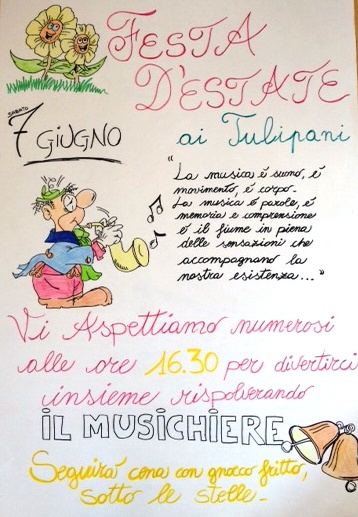 FESTA
D'ESTATE
ai Tulipani
SABATO
7 GIUGNO
"La musica è suono, è
movimento, è corpo.
La musica è parole, è
memoria e comprensione
è il fiume in piena
delle sensazioni che
accompagnano la
nostra esistenza..."
Vi Aspettiamo numerosi
alle ore 16.30 per divertirci
insieme rispolverando
IL MUSICHIERE
Seguirà cena con gnocco fritto,
sotto le stelle-